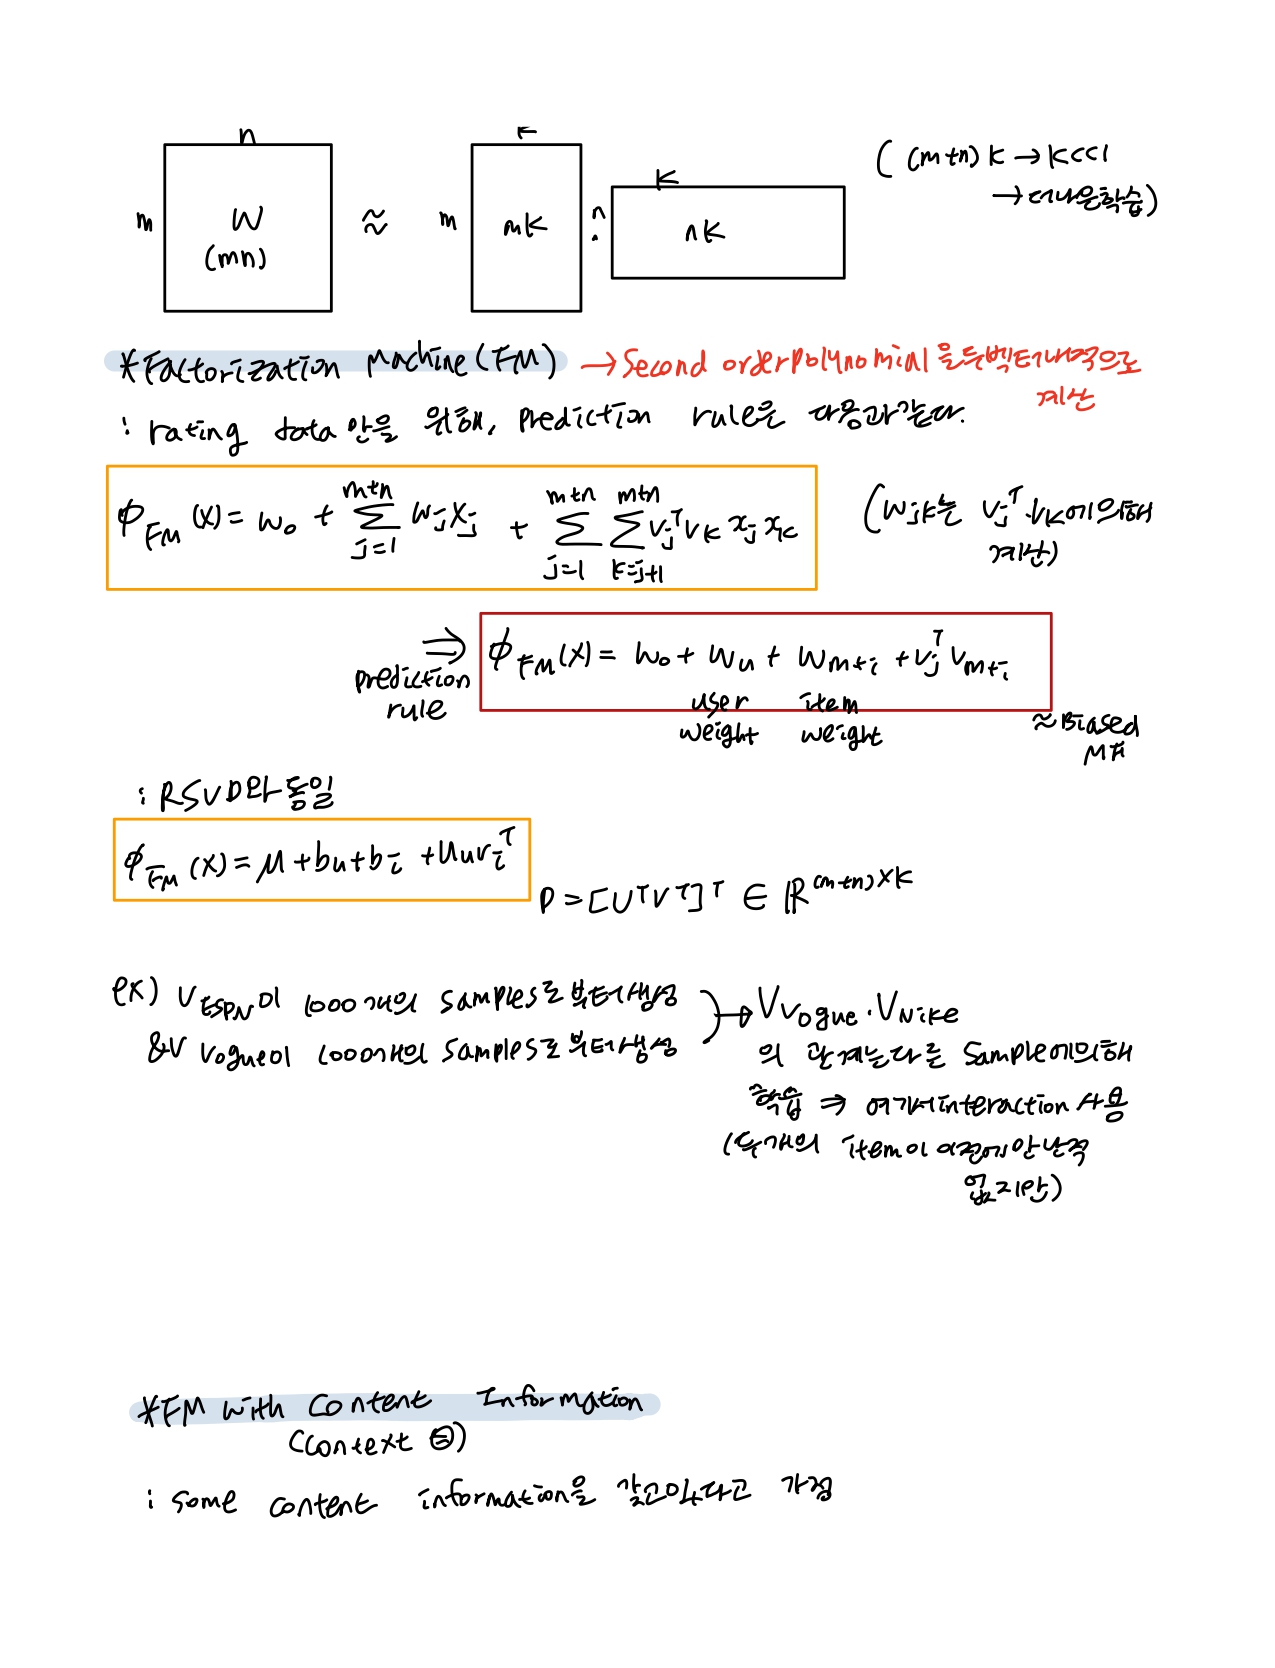 n
m W ≈ m mk n : k nk
(mn)
((m+n)k → k<<1
→ 더나은학습)
*Factorization Machine(FM) → Second order Polynominal을두벡터내적으로
계산
: rating data만을 위해, Prediction rule은 다음과같다.
ϕ_FM(X) = w₀ + Σ_{j=1}^{m+n} w_j x_j + Σ_{j=1}^{m+n} Σ_{k=j+1}^{m+n} v_j^T v_k x_j x_k
(w_jk는 v_j^T·v_k에의해
계산)
⇒ ϕ_FM(X) = w₀ + w_u + w_{m+i} + v_j^T v_{m+i}
prediction
rule
user item
weight weight
≈Biased
MF
: RSVD와 동일
ϕ_FM(X) = μ + b_u + b_i + u_u v_i^T
P = [U^T V^T]^T ∈ ℝ^{(m+n)×k}
ex) V_ESPN이 1000개의 samples로부터생성
&V Vogue이 1000개의 samples로부터생성
→ V_Vogue · V_Nike
의 관계는다른 sample에의해
학습 ⇒ 여기서interaction 사용
(두개의 item이 이전에 만난적
없지만)
*FM with Content Information
(Context 등)
: some content information을 갖고있다고 가정